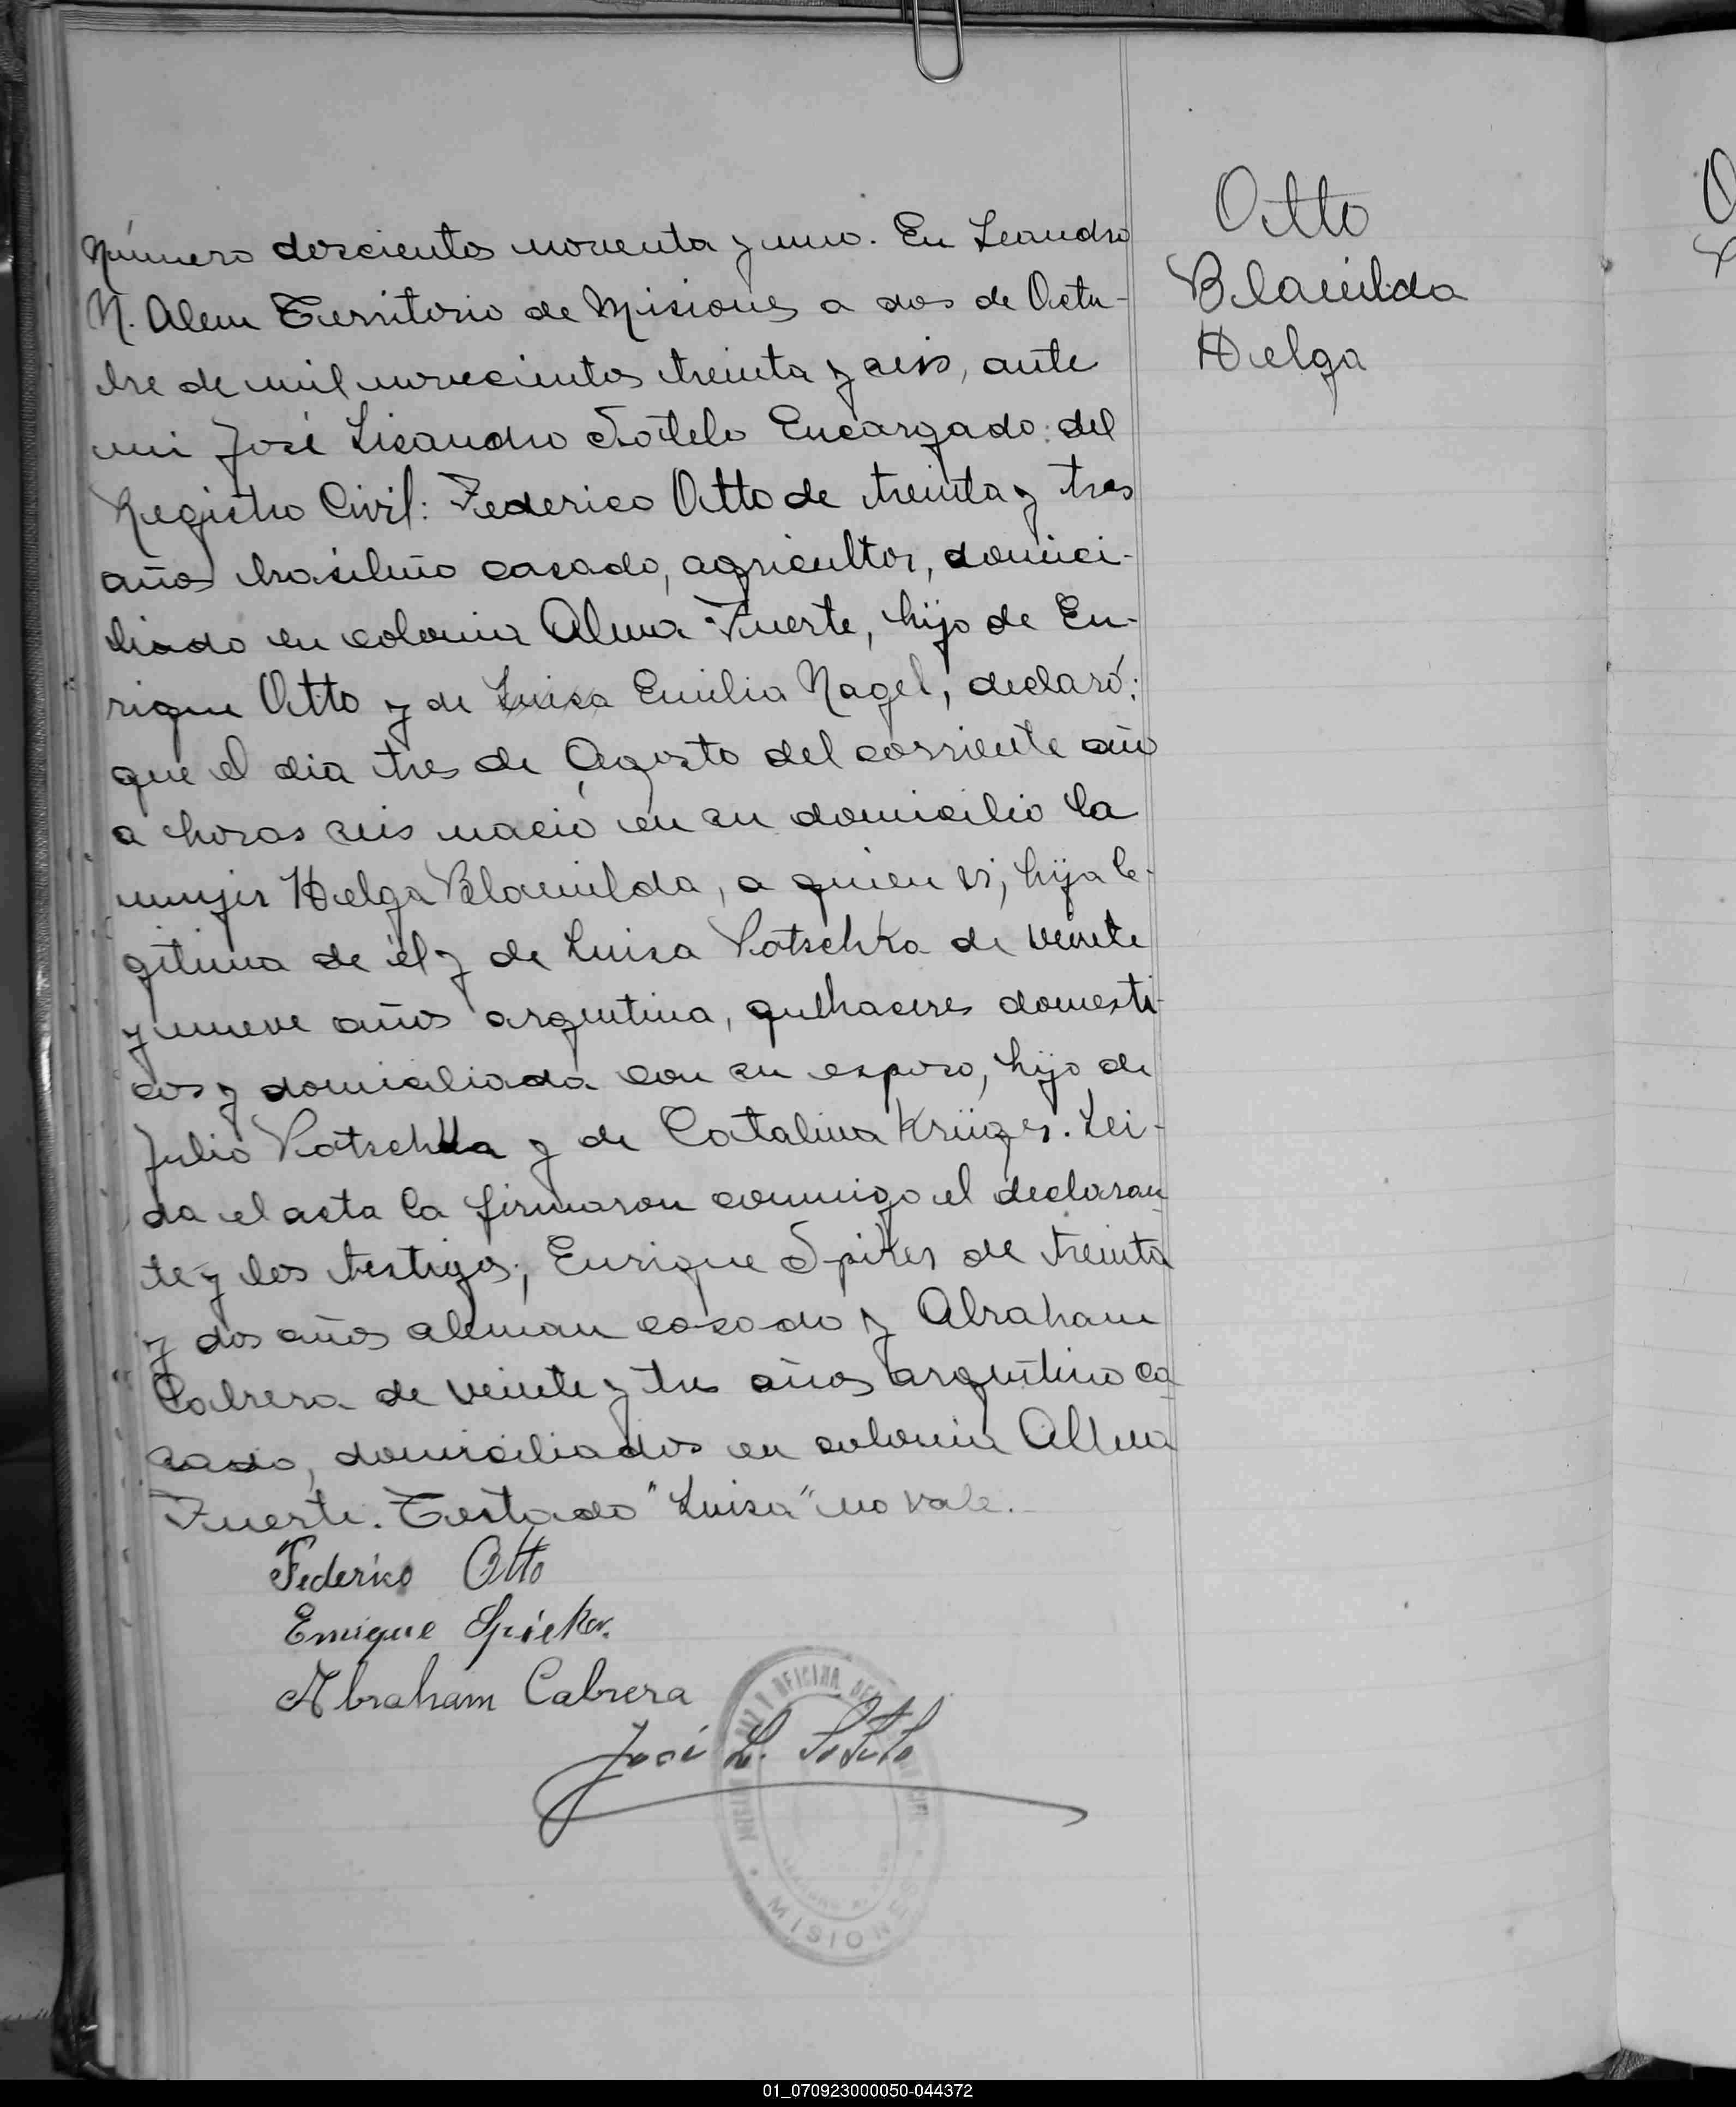 Número doscientos noventa y uno. En Leandro
N. Alem Territorio de Misiones a dos de Octu-
bre de mil novecientos treinta y seis, ante
mi José Lisandro Sotelo Encargado del
Registro Civil: Federico Otto de treinta y tres
años brasileño casado, agricultor, domici-
liado en colonia Alma Fuerte, hijo de En-
rique Otto y de Luisa Emilia Nagel, declaró:
que el dia tres de Agosto del corriente año
a horas seis nació en su domicilio la
mujer Helga Blanilda, a quien vi, hija le-
gitima de él y de Luisa Potschka de veinte
y nueve años argentina, quehaceres domesti-
cos y domiciliada con su esposo, hijo de
Julio Potschka y de Catalina Krüger. Lei-
da el acta la firmaron conmigo el declaran
te y los testigos; Enrique Spiker de treinta
y dos años aleman casado y Abraham
Cabrera de veinte y tres años argentino ca
sado, domiciliados en colonia Alma
Fuerte. Testado "Luisa" no vale.
Federico Otto
Enrique Spieker.
Abraham Cabrera
José L. Sotelo
MISIONES
Otto
Blanilda
Helga
01_070923000050-044372